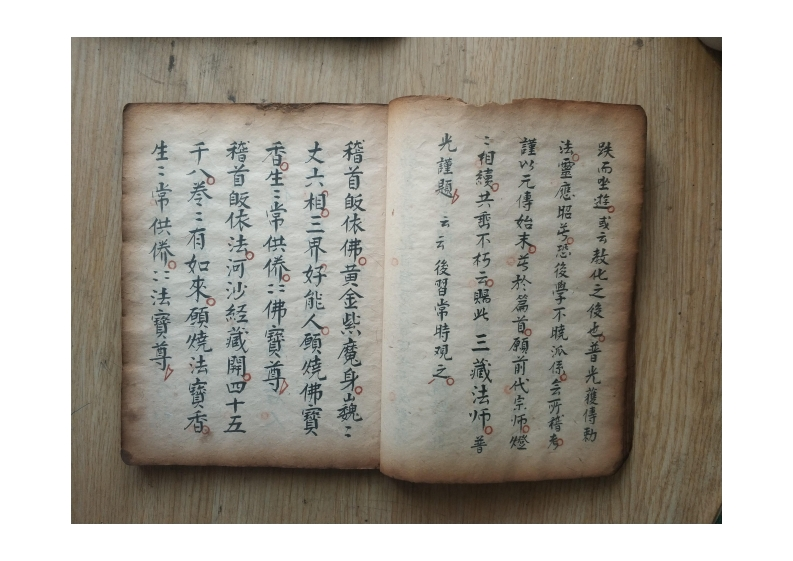 趺而坐逝或云教化之後也普光獲傳勅
法靈應昭苦恐後學不曉派係無所稽考
謹以元傳始末著於篇首願前代宗師燈
〻相續共垂不朽云賜此三藏法師普
光謹題云云後習常時观之
稽首皈依佛黃金紫魔身巍〻
丈六相三界好能人願燒佛寶
香生〻常供僸〻佛寶尊
稽首皈依法河沙經藏開四十五
千八卷〻有如來願燒法寶香
生〻常供僸〻法寶尊